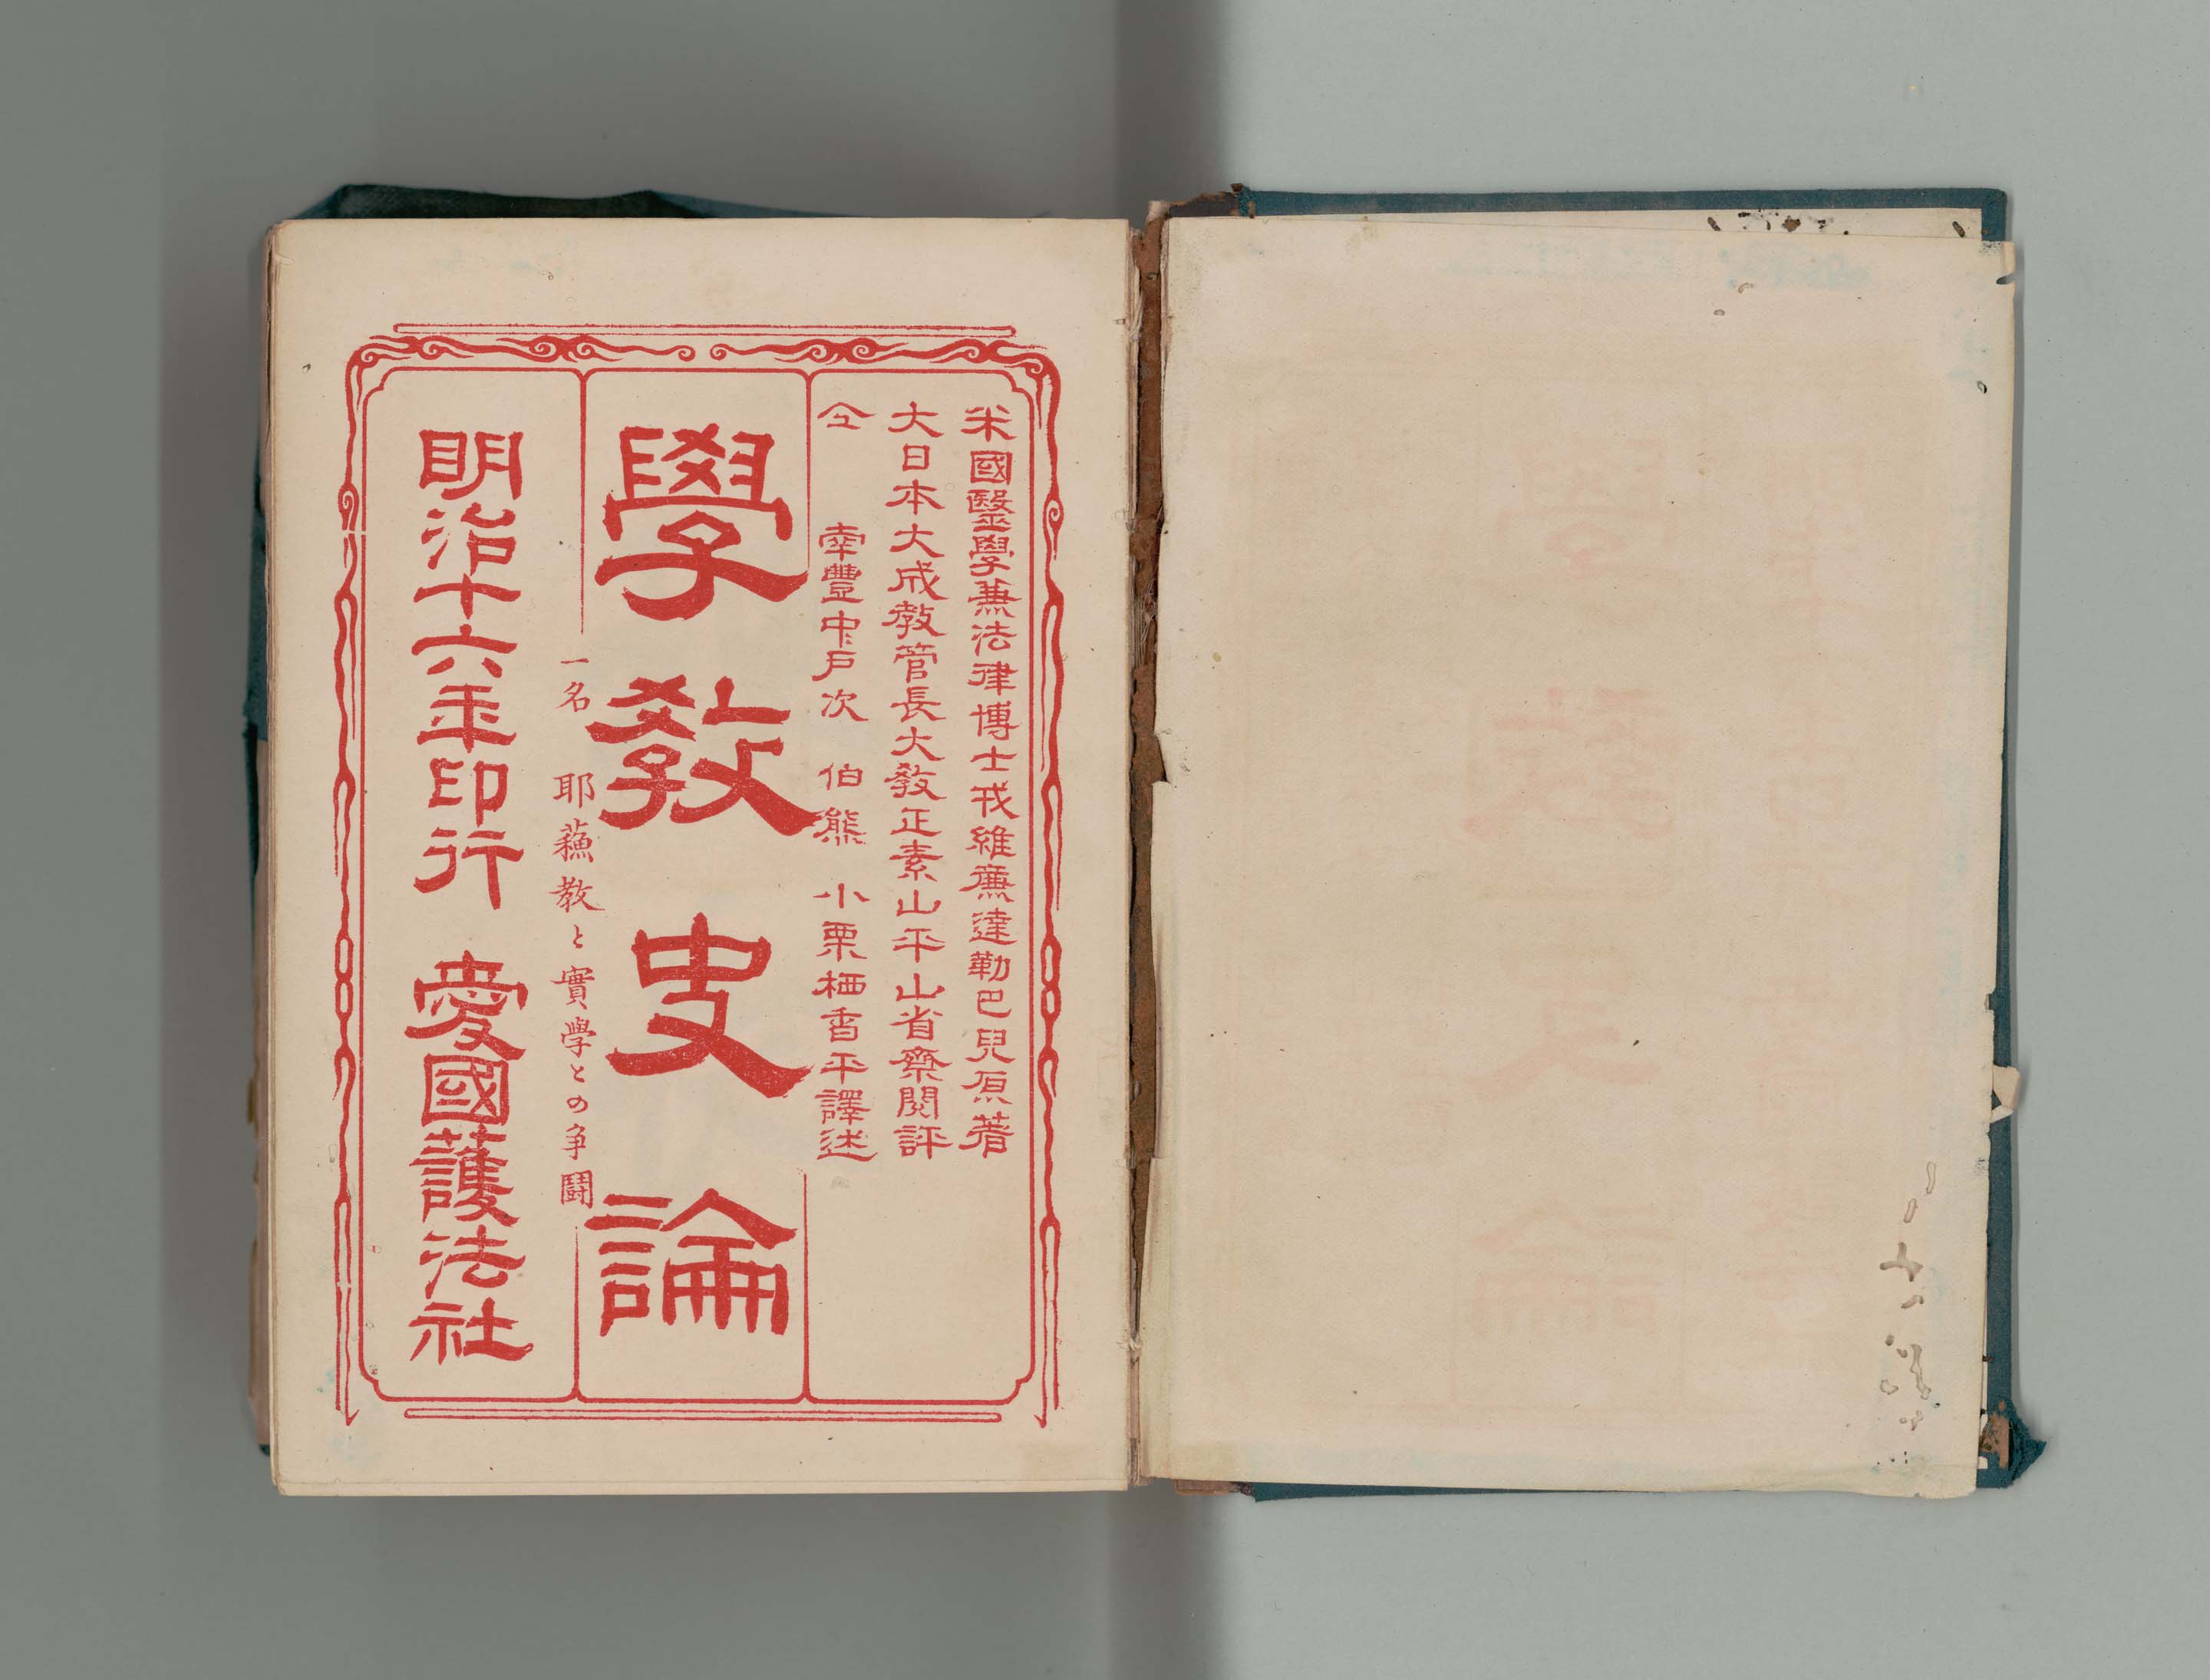 米國醫學兼法律博士戎維廉達勒巴兒原著
大日本大成教管長大教正素山平山省齋閲評
仝　豐中戸次　伯熊　小栗栖香平譯述
學教史論
一名　耶蘓教と實學との争鬪
明治十六年印行　愛國護法社